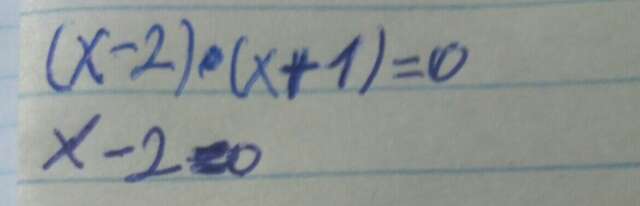 (x-2)•(x+1)=0
x-2=0